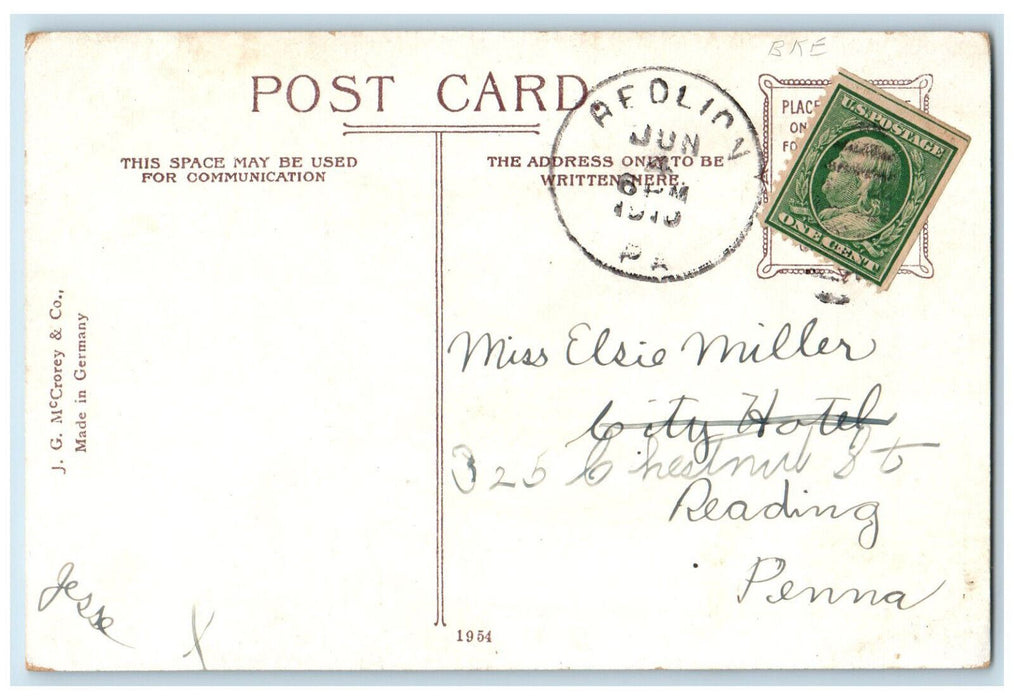 BKE
POST CARD
THIS SPACE MAY BE USED
FOR COMMUNICATION
THE ADDRESS ONLY TO BE
WRITTEN HERE.
REDLION
JUN
4
6 PM
1910
PA
PLACE
ON
FO
U.S. POSTAGE
ONE CENT
J. G. McCrorey & Co.,
Made in Germany
Miss Elsie Miller
City Hotel
325 Chestnut St
Reading
Penna
Jesse
X
1954